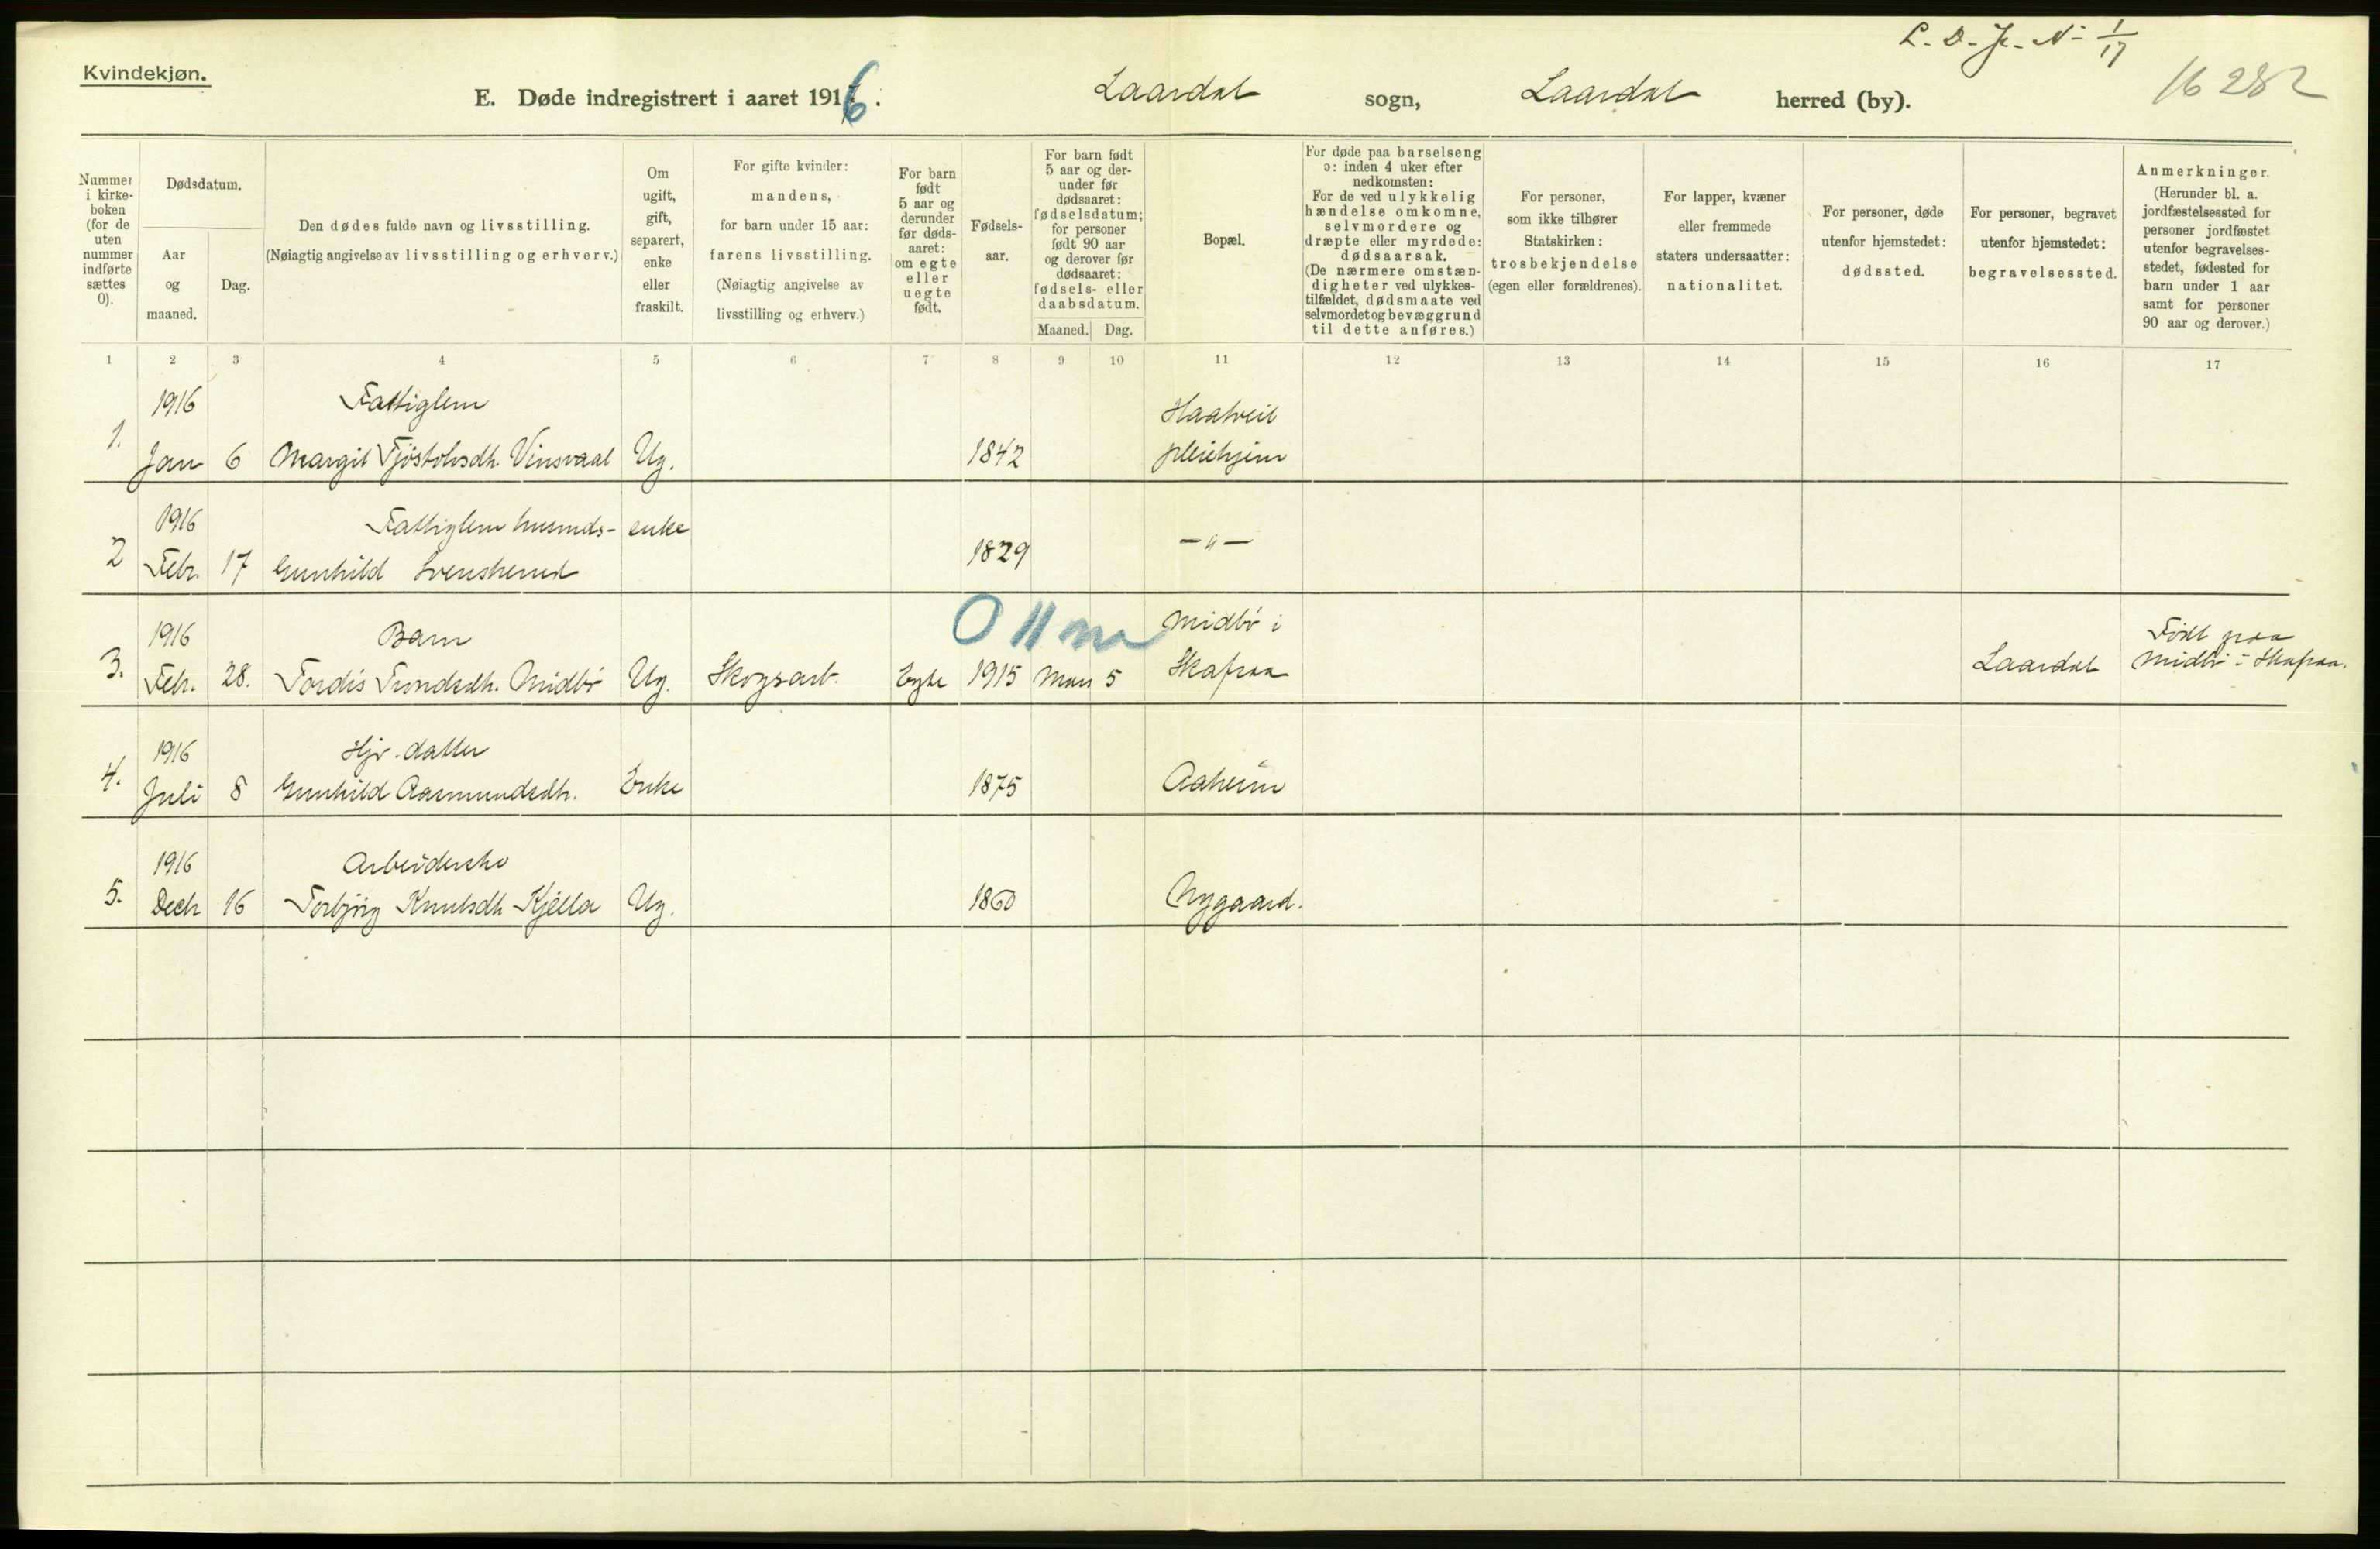 L. D. Jr. N- 1/17
Kvindekjøn.
16282
E. Døde indregistrert i aaret 1916. Laardal sogn, Laardal herred (by).
Nummer i kirke-boken (for de uten nummer indførte sættes 0).
Dødsdatum.
Aar og maaned.
Dag.
Den dødes fulde navn og livsstilling.
(Nøiagtig angivelse av livsstilling og erhverv.)
Om ugift, gift, separert, enke eller fraskilt.
For gifte kvinder: mandens, for barn under 15 aar: farens livsstilling. (Nøiagtig angivelse av livsstilling og erhverv.)
For barn født 5 aar og derunder før døds-aaret: om egte eller uegte født.
Fødsels-aar.
For barn født 5 aar og der-under før dødsaaret: fødselsdatum; for personer født 90 aar og derover før dødsaaret: fødsels- eller daabsdatum.
Maaned. Dag.
Bopæl.
For døde paa barselseng ɔ: inden 4 uker efter nedkomsten: For de ved ulykkelig hændelse omkomne, selvmordere og dræpte eller myrdede: dødsaarsak. (De nærmere omstæn-digheter ved ulykkes-tilfældet, dødsmaate ved selvmordet og bevæggrund til dette anføres.)
For personer, som ikke tilhører Statskirken: trosbekjendelse (egen eller forældrenes).
For lapper, kvæner eller fremmede staters undersaatter: nationalitet.
For personer, døde utenfor hjemstedet: dødssted.
For personer, begravet utenfor hjemstedet: begravelsessted.
Anmerkninger. (Herunder bl. a. jordfæstelsessted for personer jordfæstet utenfor begravelses-stedet, fødested for barn under 1 aar samt for personer 90 aar og derover.)
1 2 3 4 5 6 7 8 9 10 11 12 13 14 15 16 17
1916 Fattiglem Haatveit
1. Jan 6 Margit Tjöstolvsdh. Vinsvaal Ug. 1842 pleiehjem
1916 Fattiglem husmds- enke
2 Febr. 17 Gunhild Svenskerud 1829 – " –
0 11 m
1916 Barn Midbö i Født paa
3. Febr. 28. Tordis Trondsdh. Midbö Ug. Skogsarb. Egte 1915 Mars 5 Skafsaa Laardal Midbö i Skafsaa.
1916 Hjv. datter
4. Juli 8 Gunhild Aasmundsdh. Enke 1875 Aaheim
1916 Arbeiderske
5. Decbr 16 Torbjörg Knutsdh Kjella Ug. 1860 Nygaard.